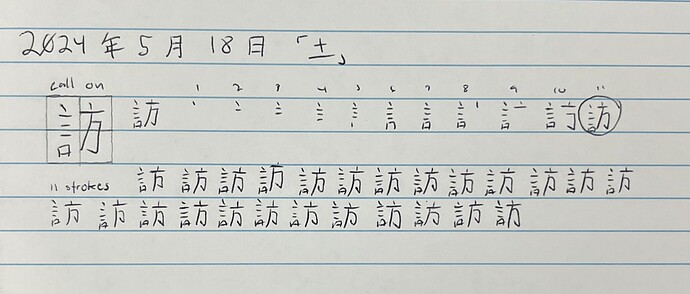 2024年5月18日「土」
call on 1 2 3 4 5 6 7 8 9 10 11
訪 訪 言 訪
11 strokes 訪 訪 訪 訪 訪 訪 訪 訪 訪 訪 訪 訪 訪
訪 訪 訪 訪 訪 訪 訪 訪 訪 訪 訪 訪